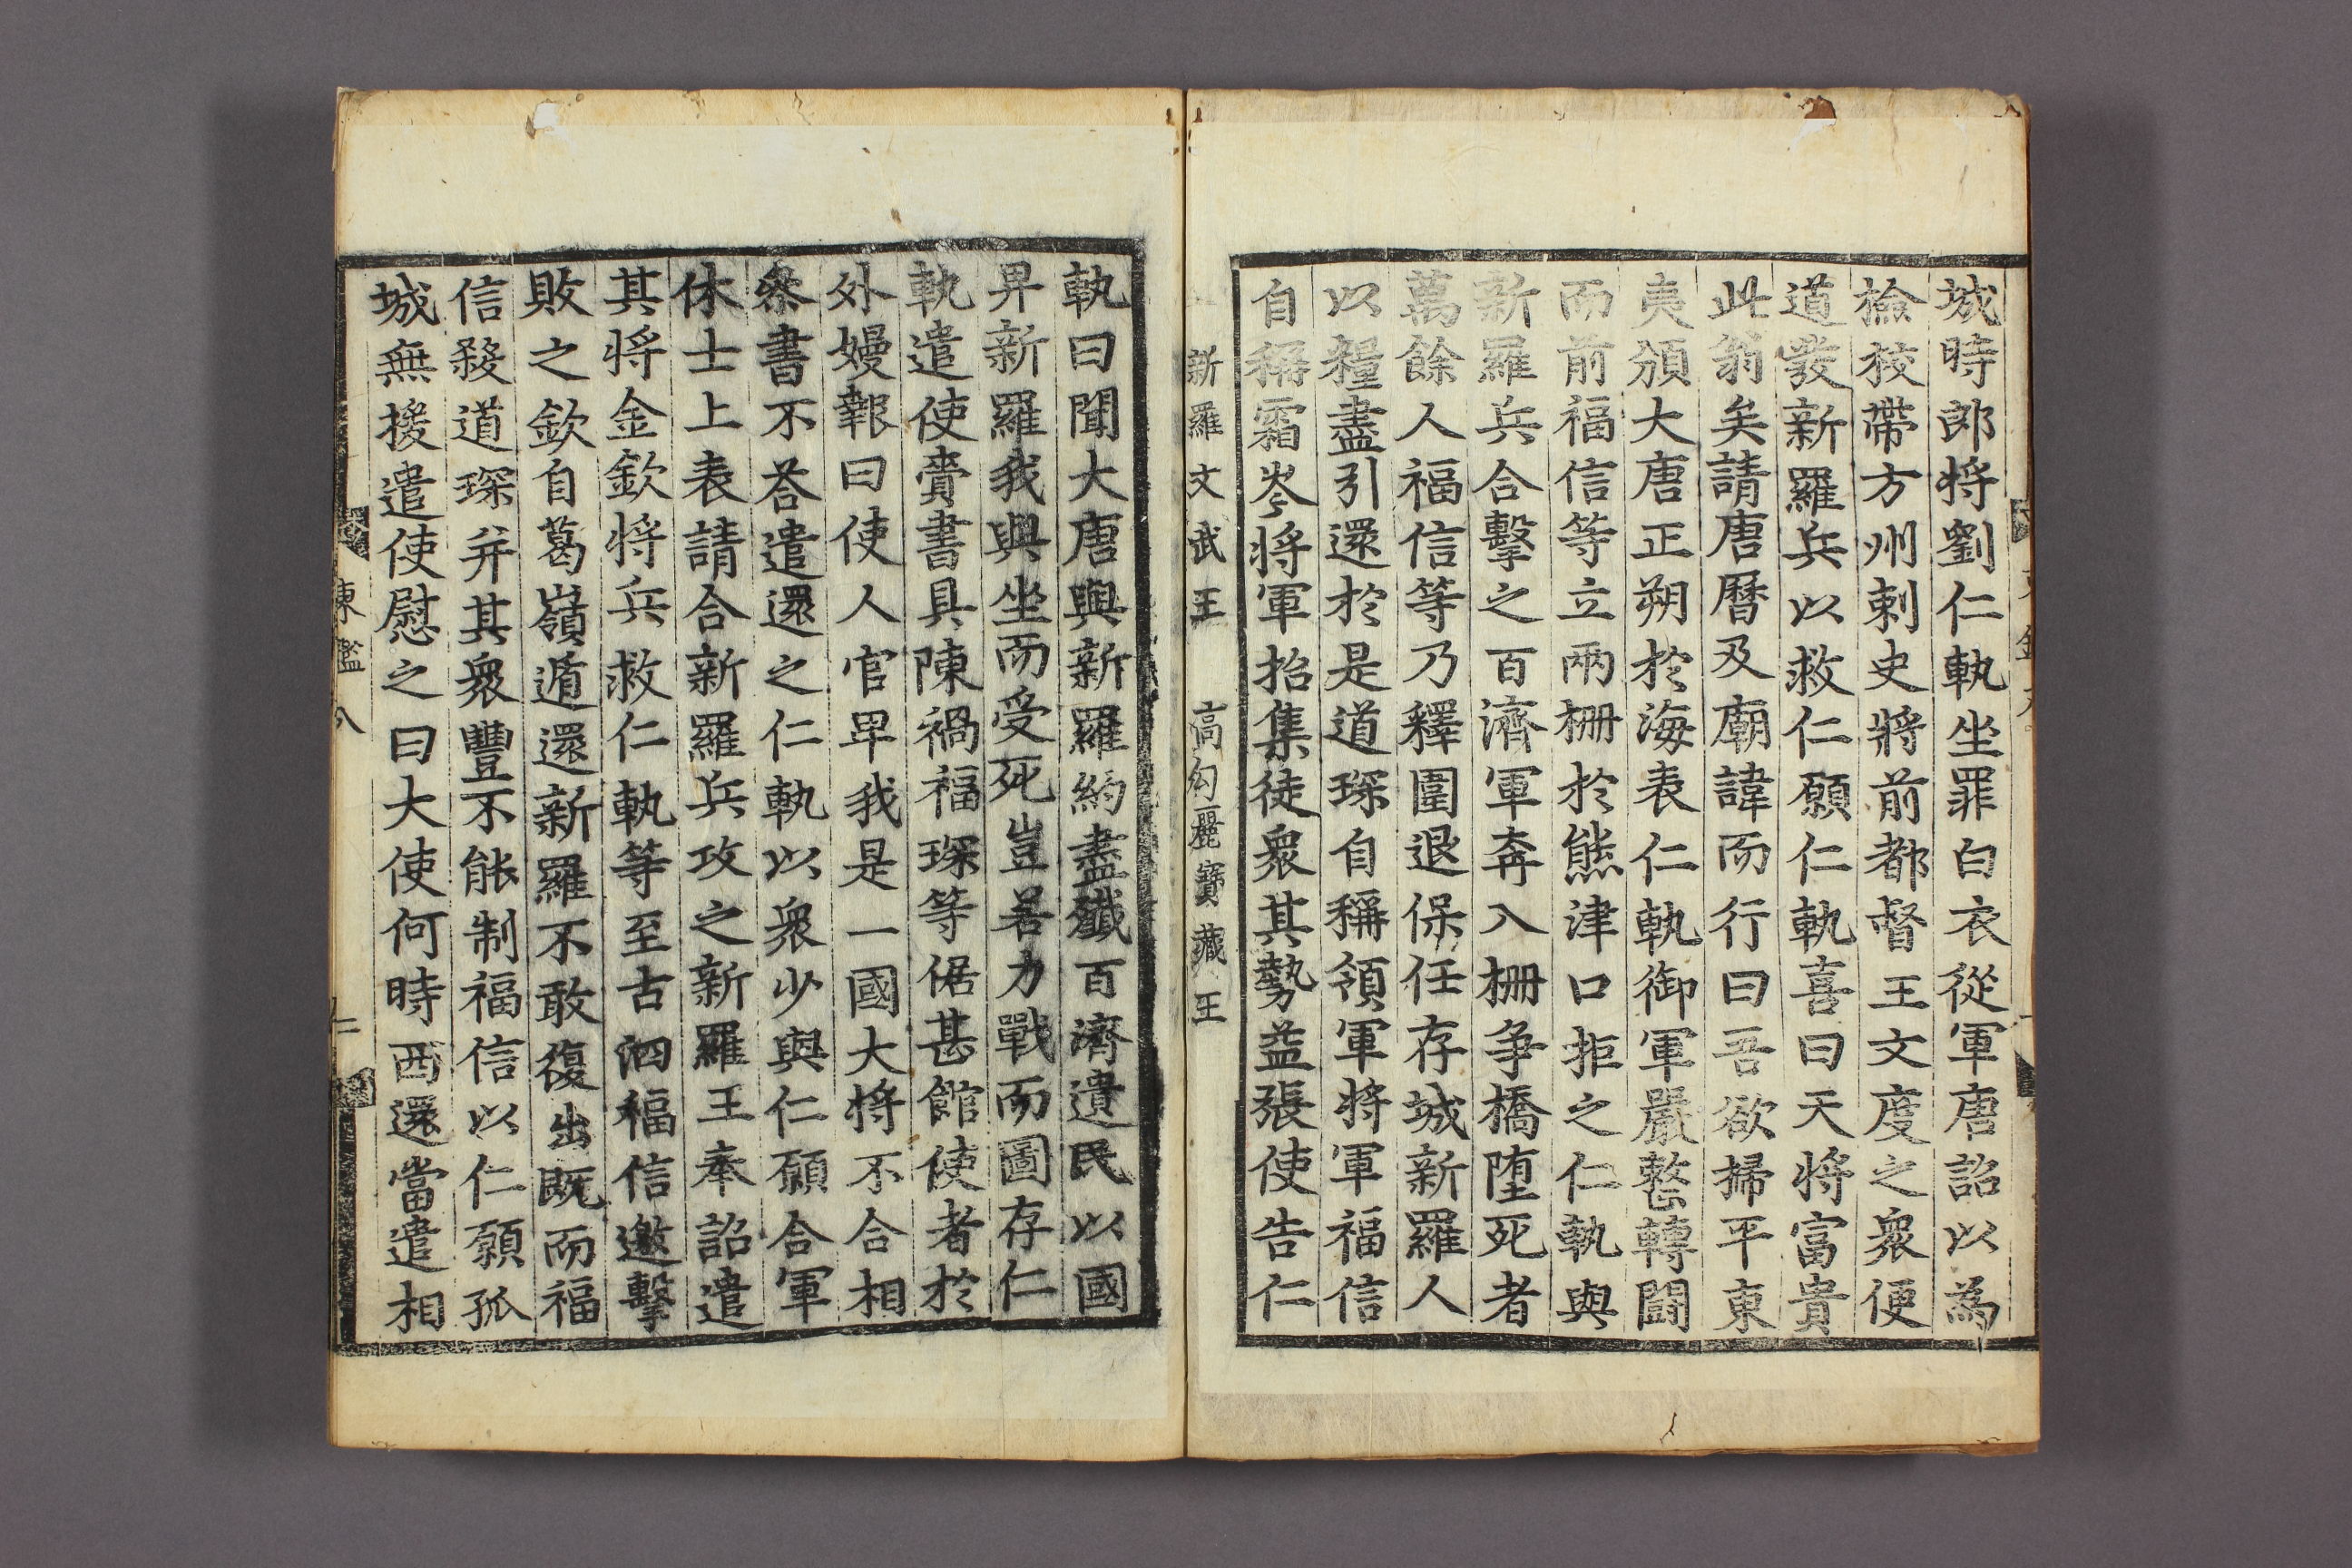 城時郎將劉仁軌坐罪白衣從軍唐詔以爲
檢校帶方州刺史將前都督王文度之衆便
道發新羅兵以救仁願仁軌喜曰天將富貴
此翁矣請唐曆及廟諱而行曰吾欲掃平東
夷頒大唐正朔於海表仁軌御軍嚴整轉鬪
而前福信等立兩柵於熊津口拒之仁軌與
新羅兵合擊之百濟軍奔入柵爭橋墮死者
萬餘人福信等乃釋圍退保任存城新羅人
以糧盡引還於是道琛自稱領軍將軍福信
自稱霜岑將軍招集徒衆其勢益張使告仁
新羅文武王　高句麗寶藏王
軌曰聞大唐與新羅約盡殲百濟遺民以國
畀新羅我與坐而受死豈若力戰而圖存仁
軌遣使賫書具陳禍福琛等倨甚館使者於
外嫚報曰使人官卑我是一國大將不合相
叅書不荅遣還之仁軌以衆少與仁願合軍
休士上表請合新羅兵攻之新羅王奉詔遣
其將金欽將兵救仁軌等至古泗福信邀擊
敗之欽自葛嶺遁還新羅不敢復出旣而福
信殺道琛并其衆豐不能制福信以仁願孤
城無援遣使慰之曰大使何時西還當遣相
東鑑八